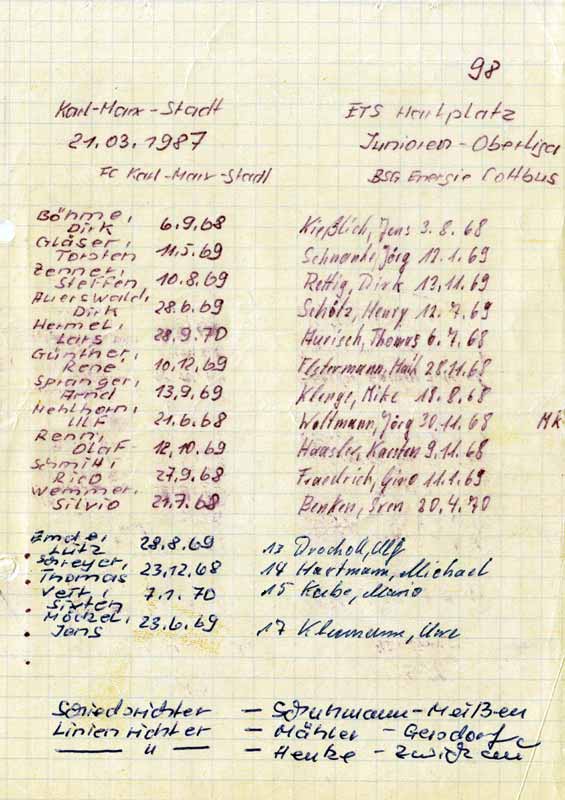 98
Karl-Marx-Stadt ETS Hartplatz
21.03.1987 Junioren-Oberliga
FC Karl-Marx-Stadt BSG Energie Cottbus
Böhme, Dirk 6.9.68 Kießlich, Jens 3.8.68
Gläser, Torsten 11.5.69 Schwanke, Jörg 12.1.69
Zenner, Steffen 10.8.69 Rettig, Dirk 13.11.69
Auerswald, Dirk 28.6.69 Scholz, Henry 12.7.69
Hermel, Lars 28.9.70 Hurisch, Thomas 6.7.68
Günther, René 10.12.69 Elstermann, Maik 28.11.68
Spranger, Arnd 13.9.69 Klenge, Mike 18.8.68
Mehlhorn, Ulf 21.6.68 Woltmann, Jörg 30.11.68 MK
Renn, Olaf 12.10.69 Haasler, Karsten 9.11.68
Schmitt, Rico 27.9.68 Friedrich, Gino 11.1.69
Wemmer, Silvio 21.7.68 Benken, Sven 20.4.70
Emde, Lutz 28.8.69 13 Drocholl, Ulf
Schreyer, Thomas 23.12.68 14 Hartmann, Michael
Vett, Sixten 7.1.70 15 Kube, Mario
Möckel, Jens 23.6.69 17 Klaumann, Uwe
Schiedsrichter - Schuhmann-Meißen
Linienrichter - Mähler - Gersdorf
— " — - Henke - Zwickau